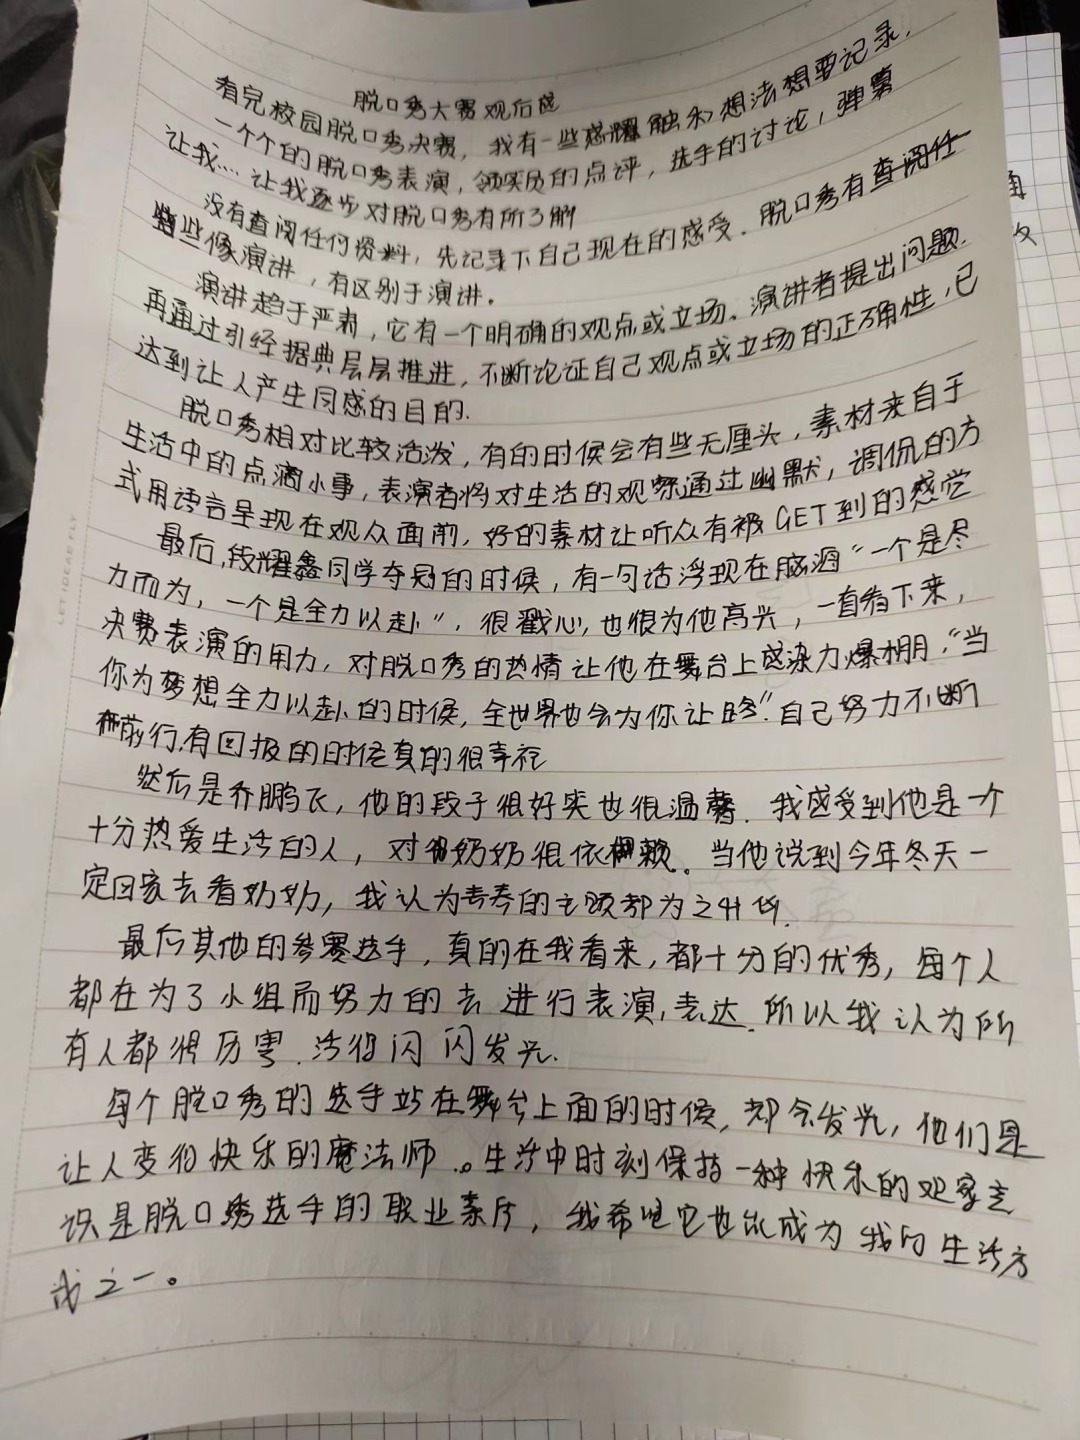 脱口秀大赛观后感
看完校园脱口秀决赛，我有一些感触和想法想要记录，
一个个的脱口秀表演，领笑员的点评，选手的讨论，弹幕
让我…让我逐步对脱口秀有所了解
没有查阅任何资料，先记录下自己现在的感受。脱口秀有查阅任
些像演讲，有区别于演讲。
演讲趋于严肃，它有一个明确的观点或立场。演讲者提出问题.
再通过引经据典层层推进，不断论证自己观点或立场的正确性，已
达到让人产生同感的目的.
脱口秀相对比较活泼，有的时候会有些无厘头，素材来自于
生活中的点滴小事，表演者将对生活的观察通过幽默，调侃的方
式用语言呈现在观众面前，好的素材让听众有被GET到的感觉
最后，段耀鑫同学夺冠的时候，有一句话浮现在脑海“一个是尽
力而为，一个是全力以赴”，很戳心，也恨为他高兴，一直看下来，
决赛表演的用力，对脱口秀的热情让他在舞台上感染力爆棚，“当
你为梦想全力以赴的时候，全世界也会为你让路”.自己努力不断
前行，有回报的时候真的很幸福
然后是乔鹏飞，他的段子很好笑也很温馨.我感受到他是一个
十分热爱生活的人，对奶奶很依赖。当他说到今年冬天一
定回家去看奶奶，我认为青春的主题都为之升华.
最后其他的参赛选手，真的在我看来，都十分的优秀，每个人
都在为了小组而努力的去进行表演，表达.所以我认为所
有人都很厉害.活得闪闪发光.
每个脱口秀的选手站在舞台上面的时候，都会发光，他们是
让人变得快乐的魔法师。生活中时刻保持一种快乐的观察意
识是脱口秀选手的职业素质，我希望它也能成为我的生活方
式之一。
LET IDEAS FLY